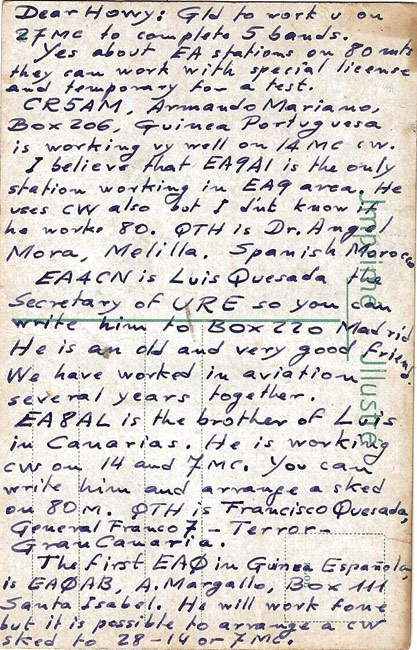 Dear Howy: Gld to work u on
27MC to complete 5 bands.
Yes about EA stations on 80 mts
they can work with special license
and temporary for a test.
CR5AM, Armando Mariano,
Box 206, Guinea Portuguesa
is working vy well on 14 MC cw.
I believe that EA9AI is the only
station working in EA9 area. He
uses CW also but I dnt know if
he works 80. QTH is Dr. Angel
Mora, Melilla. Spanish Morocco
EA4CN is Luis Quesada the
Secretary of URE so you can
write him to BOX 220 Madrid
He is an old and very good friend
We have worked in aviation
several years together.
EA8AL is the brother of Luis
in Canarias. He is working
cw on 14 and 7 MC. You can
write him and arrange a sked
on 80 M. QTH is Francisco Quesada,
General Franco 7 - Terror-
Gran Canaria.
The first EAØ in Guinea Española,
is EAØAB, A. Margallo, Box 111
Santa Isabel. He will work fone
but it is possible to arrange a cw
sked to 28-14 or 7 MC.